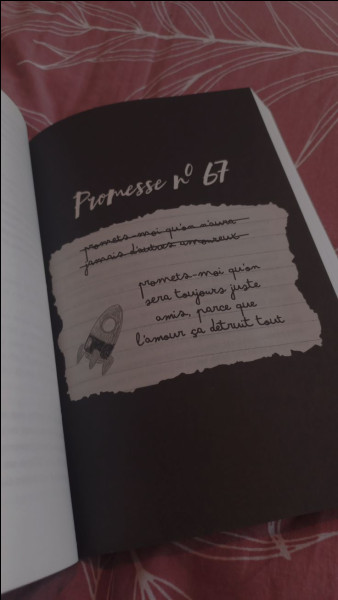 Promesse nº 67
promets-moi qu'on n'aura
jamais d'autres amoureux
promets-moi qu'on
sera toujours juste
amis, parce que
l'amour ça détruit tout